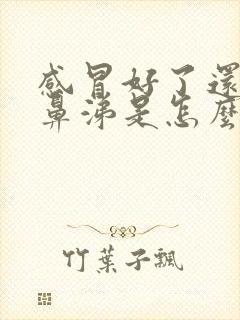 感冒好了還
鼻涕是怎麼
竹葉子飄